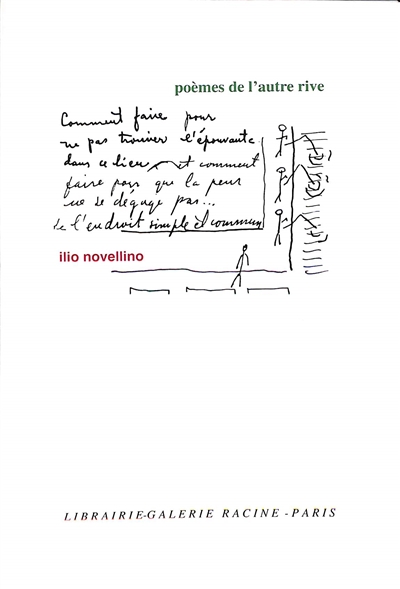 poèmes de l'autre rive
Comment faire pour
ne pas trouver l'épouvante
dans ce lieu et comment
faire pour que la peur
ne se dégage pas...
de l'endroit simple et commun
ilio novellino
LIBRAIRIE-GALERIE RACINE - PARIS